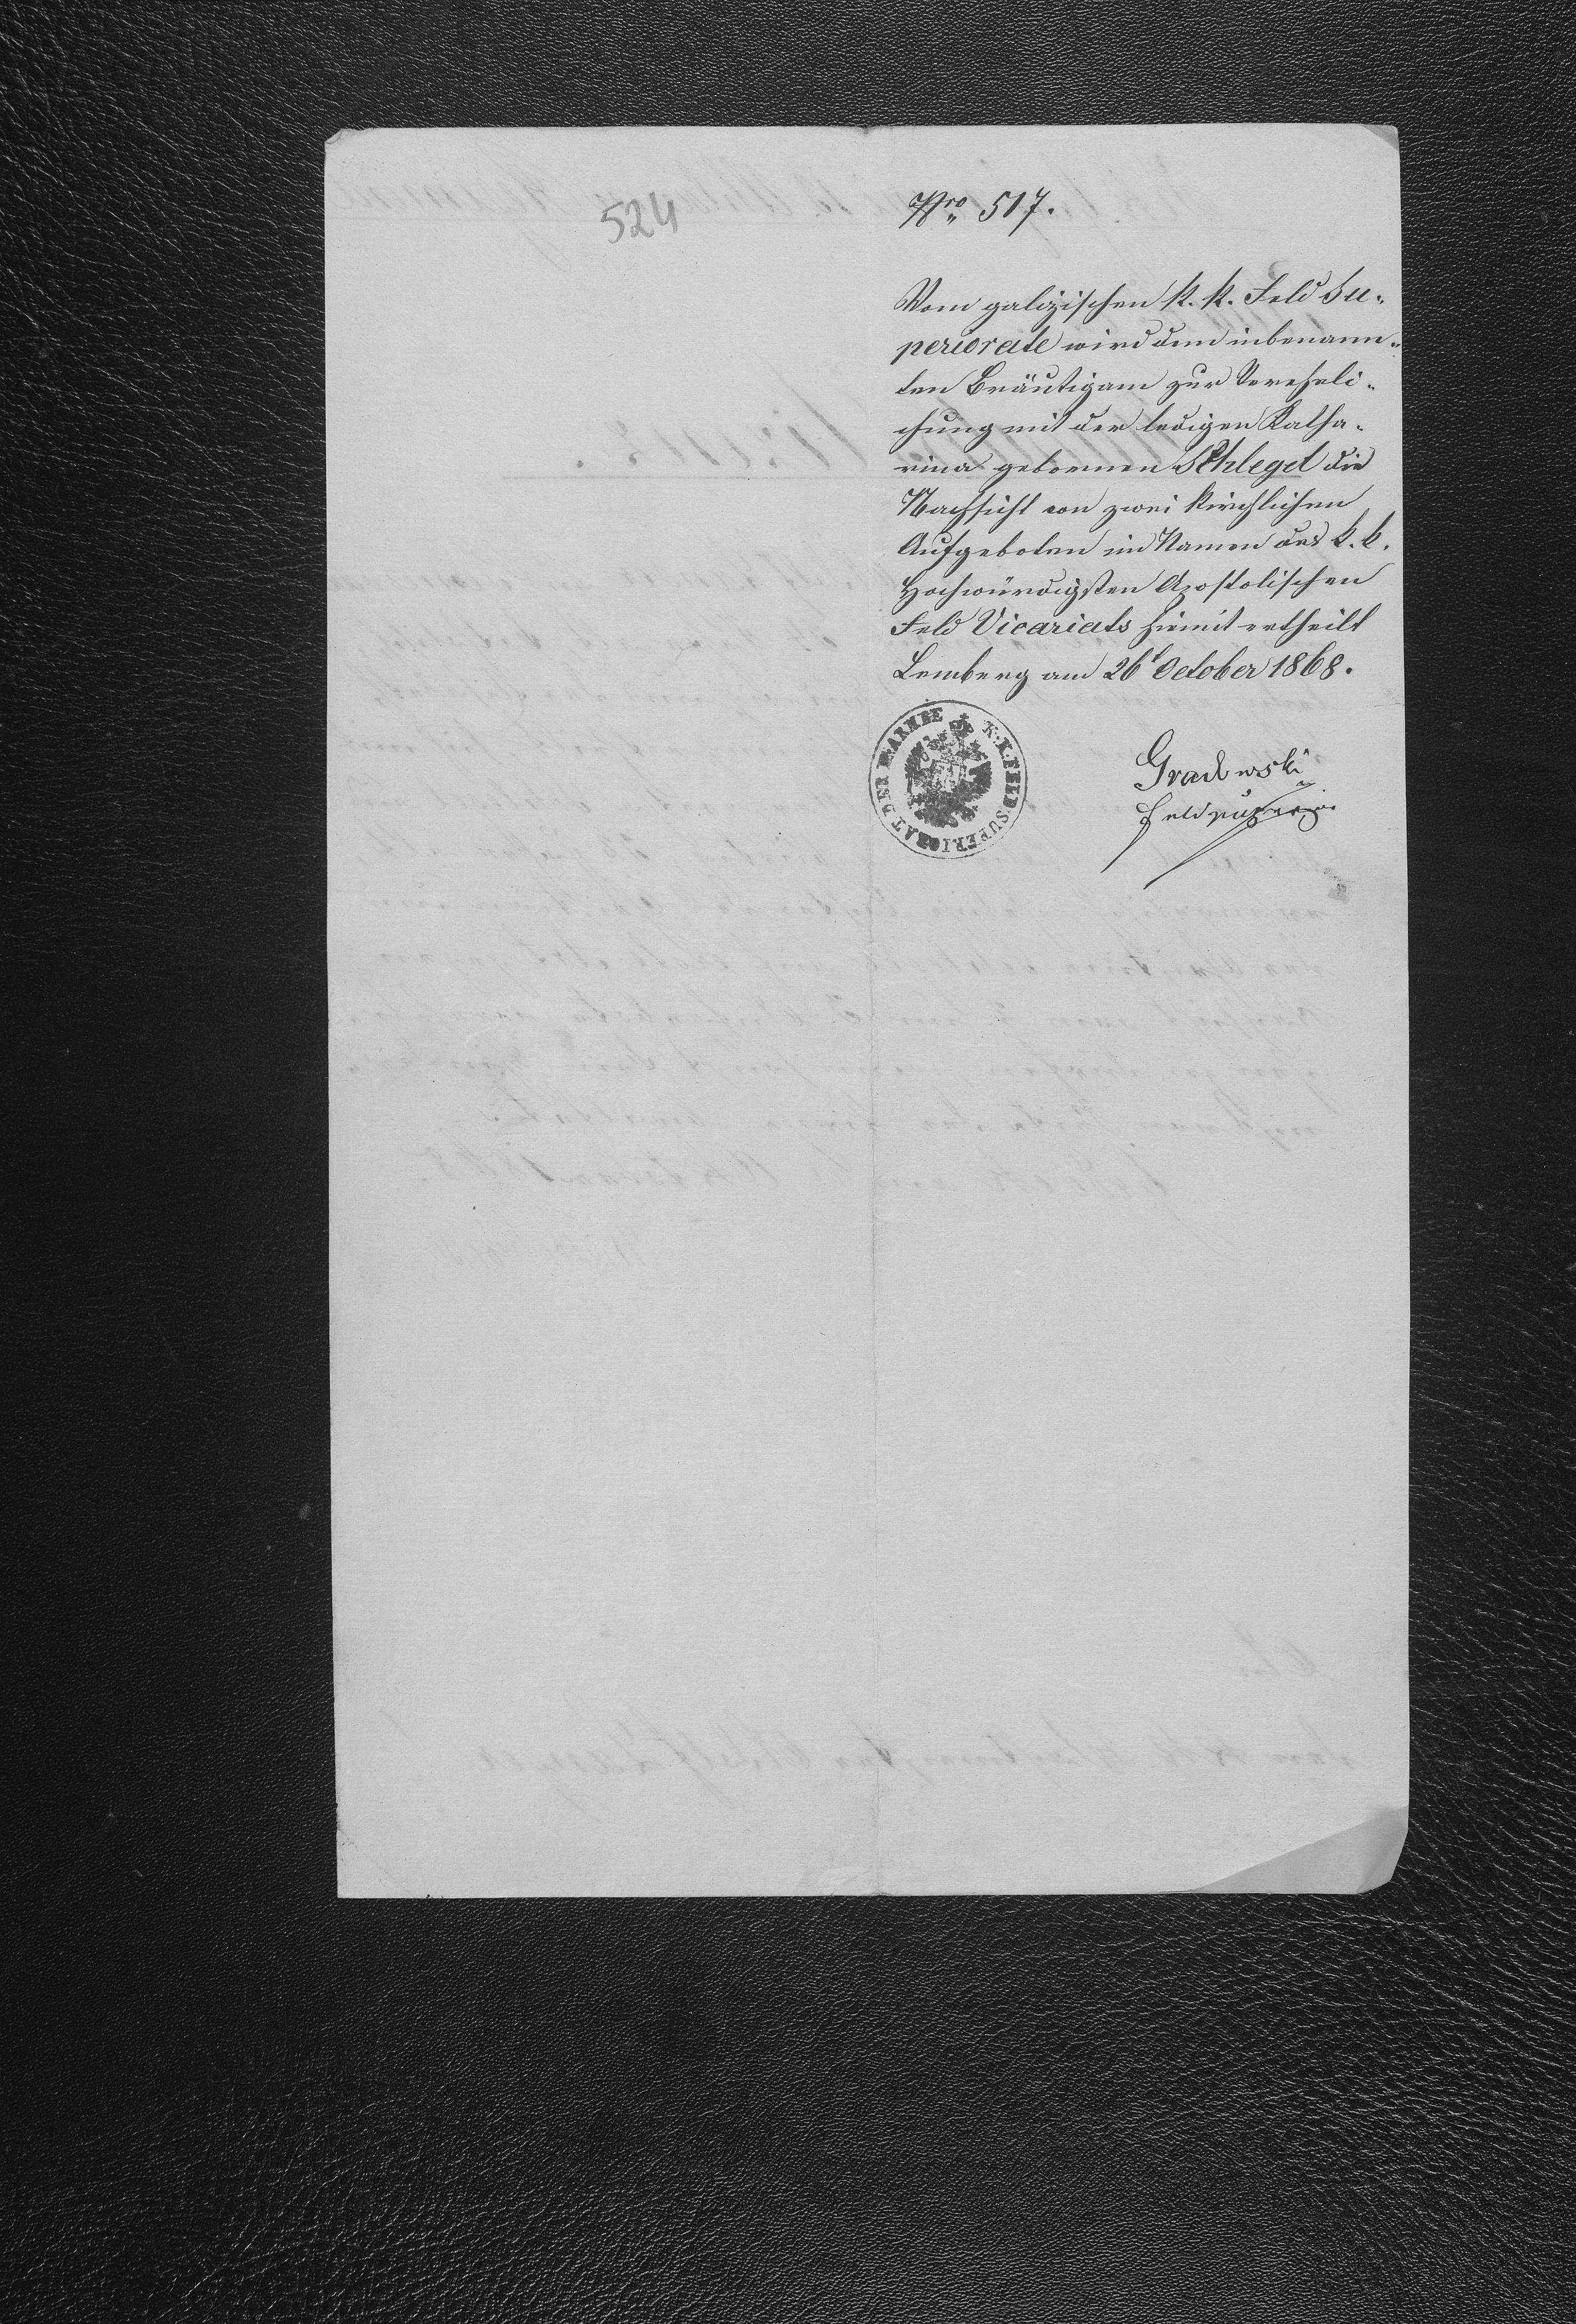 524
Nro 517.
Vom galizischen K. K. Feld Su-
periorate wird dem inbenann-
ten Bräutigam zur Vereheli-
chung mit der ledigen Katha-
rina gebornen Schlegel die
Nachsicht von zwei kirchlichen
Aufgeboten im Namen des k. k.
Hochwürdigsten Apostolischen
Feld Vicariats hiemit ertheilt
Lemberg am 26t October 1868.
K. K. FELDSUPERIORAT DER ARMEE
Gradowski
Feldsuperior